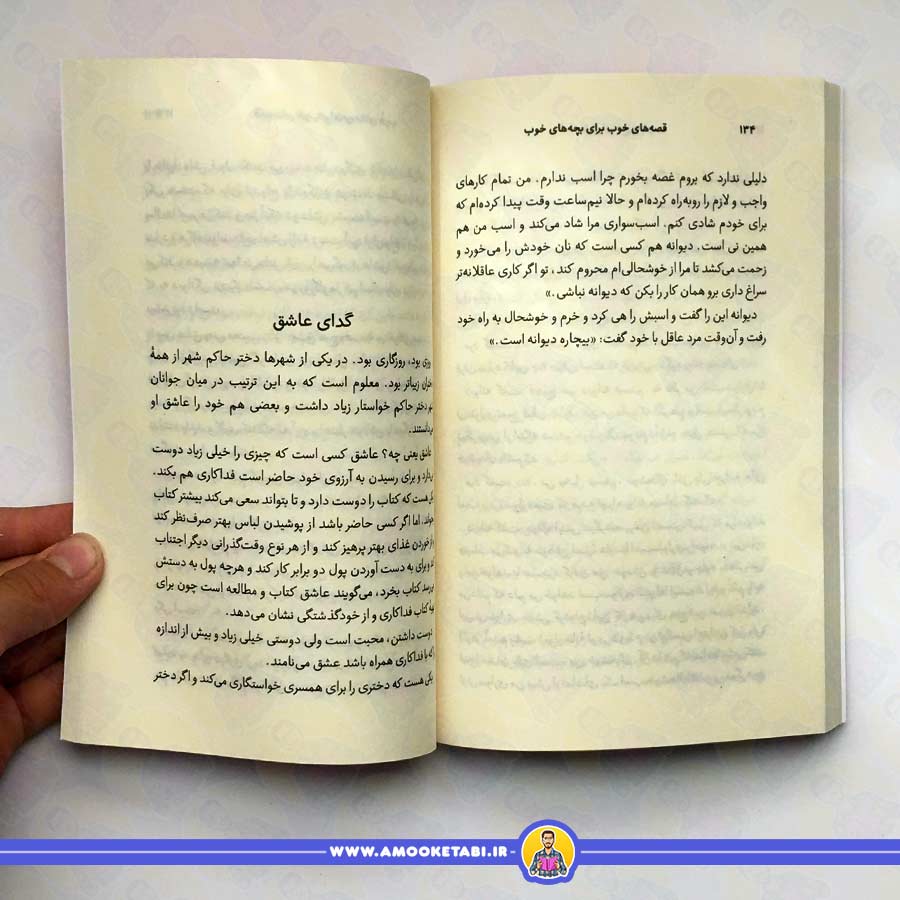 ۱۳۴
قصه‌های خوب برای بچه‌های خوب
دلیلی ندارد که بروم غصه بخورم چرا اسب ندارم. من تمام کارهای
واجب و لازم را روبه‌راه کرده‌ام و حالا نیم‌ساعت وقت پیدا کرده‌ام که
برای خودم شادی کنم. اسب‌سواری مرا شاد می‌کند و اسب من هم
همین نی است. دیوانه هم کسی است که نان خودش را می‌خورد و
زحمت می‌کشد تا مرا از خوشحالی‌ام محروم کند، تو اگر کاری عاقلانه‌تر
سراغ داری برو همان کار را بکن که دیوانه نباشی.»
دیوانه این را گفت و اسبش را هی کرد و خرم و خوشحال به راه خود
رفت و آن‌وقت مرد عاقل با خود گفت: «بیچاره دیوانه است.»
گدای عاشق
روزی بود، روزگاری بود. در یکی از شهرها دختر حاکم شهر از همهٔ
زیباتر بود. معلوم است که به این ترتیب در میان جوانان
دختر حاکم خواستار زیاد داشت و بعضی هم خود را عاشق او
عاشق یعنی چه؟ عاشق کسی است که چیزی را خیلی زیاد دوست
و برای رسیدن به آرزوی خود حاضر است فداکاری هم بکند.
یکی هست که کتاب را دوست دارد و تا بتواند سعی می‌کند بیشتر کتاب
اما اگر کسی حاضر باشد از پوشیدن لباس بهتر صرف‌نظر کند
خوردن غذای بهتر پرهیز کند و از هر نوع وقت‌گذرانی دیگر اجتناب
برای به دست آوردن پول دو برابر کار کند و هرچه پول به دستش
کتاب بخرد، می‌گویند عاشق کتاب و مطالعه است چون برای
کتاب فداکاری و از خودگذشتگی نشان می‌دهد.
دوست داشتن، محبت است ولی دوستی خیلی زیاد و بیش از اندازه
که با فداکاری همراه باشد عشق می‌نامند.
یکی هست که دختری را برای همسری خواستگاری می‌کند و اگر دختر
WWW.AMOOKETABI.IR